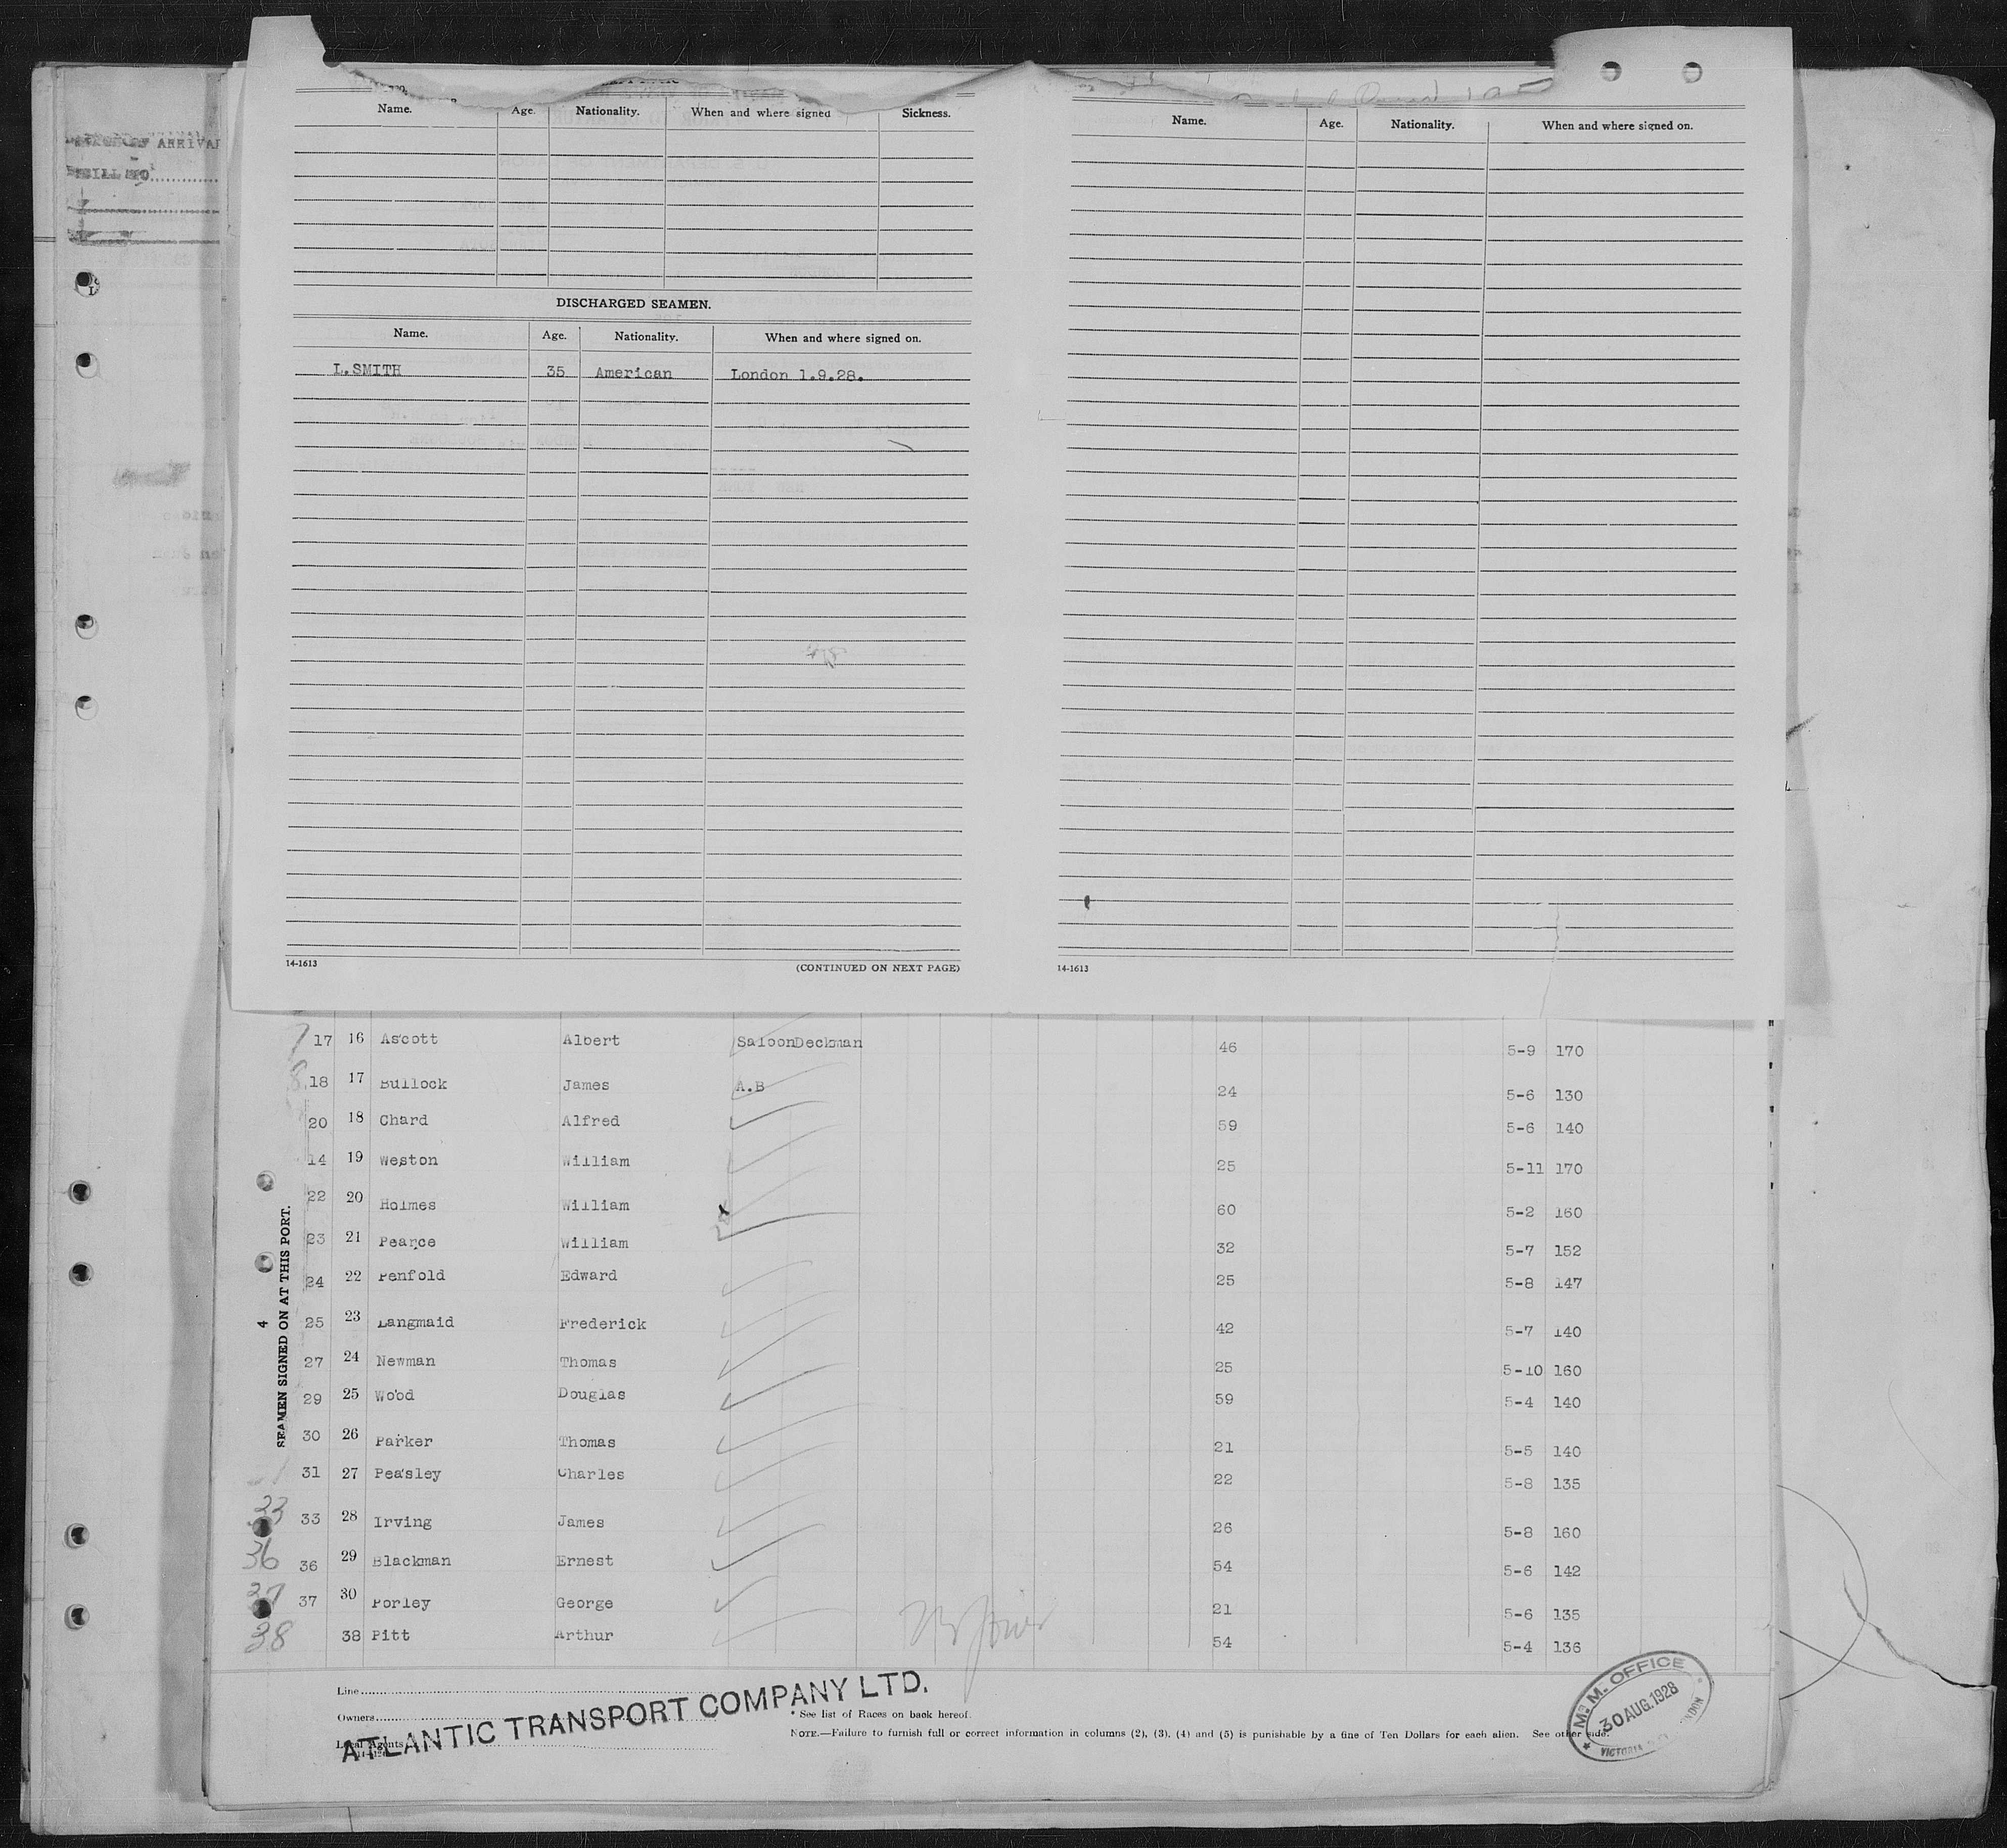 ARRIVAL
Name. Age. Nationality. When and where signed Sickness.
DISCHARGED SEAMEN.
Name. Age. Nationality. When and where signed on.
L.SMITH 35 American London 1.9.28.
14-1613 (CONTINUED ON NEXT PAGE)
Name. Age. Nationality. When and where signed on.
14-1613
4
SEAMEN SIGNED ON AT THIS PORT.
7 17 16 Ascott Albert SaloonDeckman 46 5-9 170
8 18 17 Bullock James A.B 24 5-6 130
20 18 Chard Alfred 59 5-6 140
14 19 Weston William 25 5-11 170
22 20 Holmes William 60 5-2 160
23 21 Pearce William 32 5-7 152
24 22 Penfold Edward 25 5-8 147
25 23 Langmaid Frederick 42 5-7 140
27 24 Newman Thomas 25 5-10 160
29 25 Wood Douglas 59 5-4 140
30 26 Parker Thomas 21 5-5 140
31 27 Peasley Charles 22 5-8 135
33 33 28 Irving James 26 5-8 160
36 36 29 Blackman Ernest 54 5-6 142
37 37 30 Porley George 21 5-6 135
38 38 Pitt Arthur 54 5-4 136
Line
Owners
Local Agents
ATLANTIC TRANSPORT COMPANY LTD.
* See list of Races on back hereof.
NOTE.—Failure to furnish full or correct information in columns (2), (3), (4) and (5) is punishable by a fine of Ten Dollars for each alien. See other side.
M. M. OFFICE
30 AUG.1928
VICTORIA